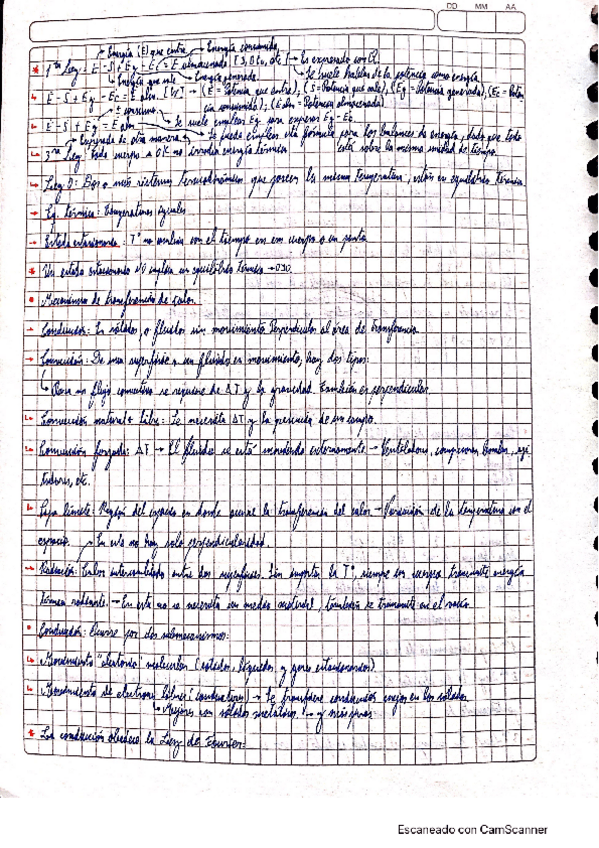 DD MM AA
Energía (E) que entra Energía consumida
* 1ra Ley: E - S + Eg - Ec = E almacenado [J, BTU, etc] → Es expresado con Q.
Energía que sale Energía generada. Se suele hablar de la potencia como energía.
E - S + Eg - Ec = E alm. [W] → (E = Potencia que entra), (S = Potencia que sale), (Eg = Potencia generada), (Ec = Poten
cia consumida), (E alm = Potencia almacenada)
± consumo Se suele emplear Eg para expresar Eg - Ec.
E - S + Eg = E alm Se puede emplear esta fórmula para los balances de energía, dado que todo
Expresada de otra manera está sobre la misma unidad de tiempo.
3ra Ley: Todo cuerpo a 0K no irradia energía térmica
Ley 0: Dos o más sistemas termodinámicos que poseen la misma temperatura, están en equilibrio térmico.
Eq. térmico: temperaturas iguales
Estado estacionario: T° no cambia con el tiempo en un cuerpo o un punto.
* Un estado estacionario NO implica un equilibrio térmico → OJO.
Mecanismos de transferencia de calor.
Conducción: En sólidos, o fluidos sin movimiento Perpendicular al área de transferencia.
Convección: De una superficie a un fluido en movimiento, hay dos tipos:
Para un flujo convectivo se requiere de ΔT y la gravedad. También es perpendicular.
Convección natural o Libre: Se necesita ΔT y la presencia de un campo.
Convección forzada: ΔT → El fluido se está moviendo externamente → Ventiladores, compresores, bombas, agi
tadores, etc.
Capa límite: Región del espacio en donde ocurre la transferencia del calor → Variación de la temperatura con el
espacio. En esta no hay solo perpendicularidad.
Radiación: Calor intercambiado entre dos superficies. Sin importar la T°, siempre los cuerpos transmite energía
térmica radiante. → En esta no se necesita un medio material, también se transmite en el vacío.
Conducción: Ocurre por dos submecanismos:
Movimiento molecular (sólidos, líquidos y gases estacionarios)
Movimiento de electrones libres (conductores) → Se transfiere en los sólidos.
Mejores con sólidos metálicos y más puros
* La conducción obedece la Ley de Fourier:
Escaneado con CamScanner